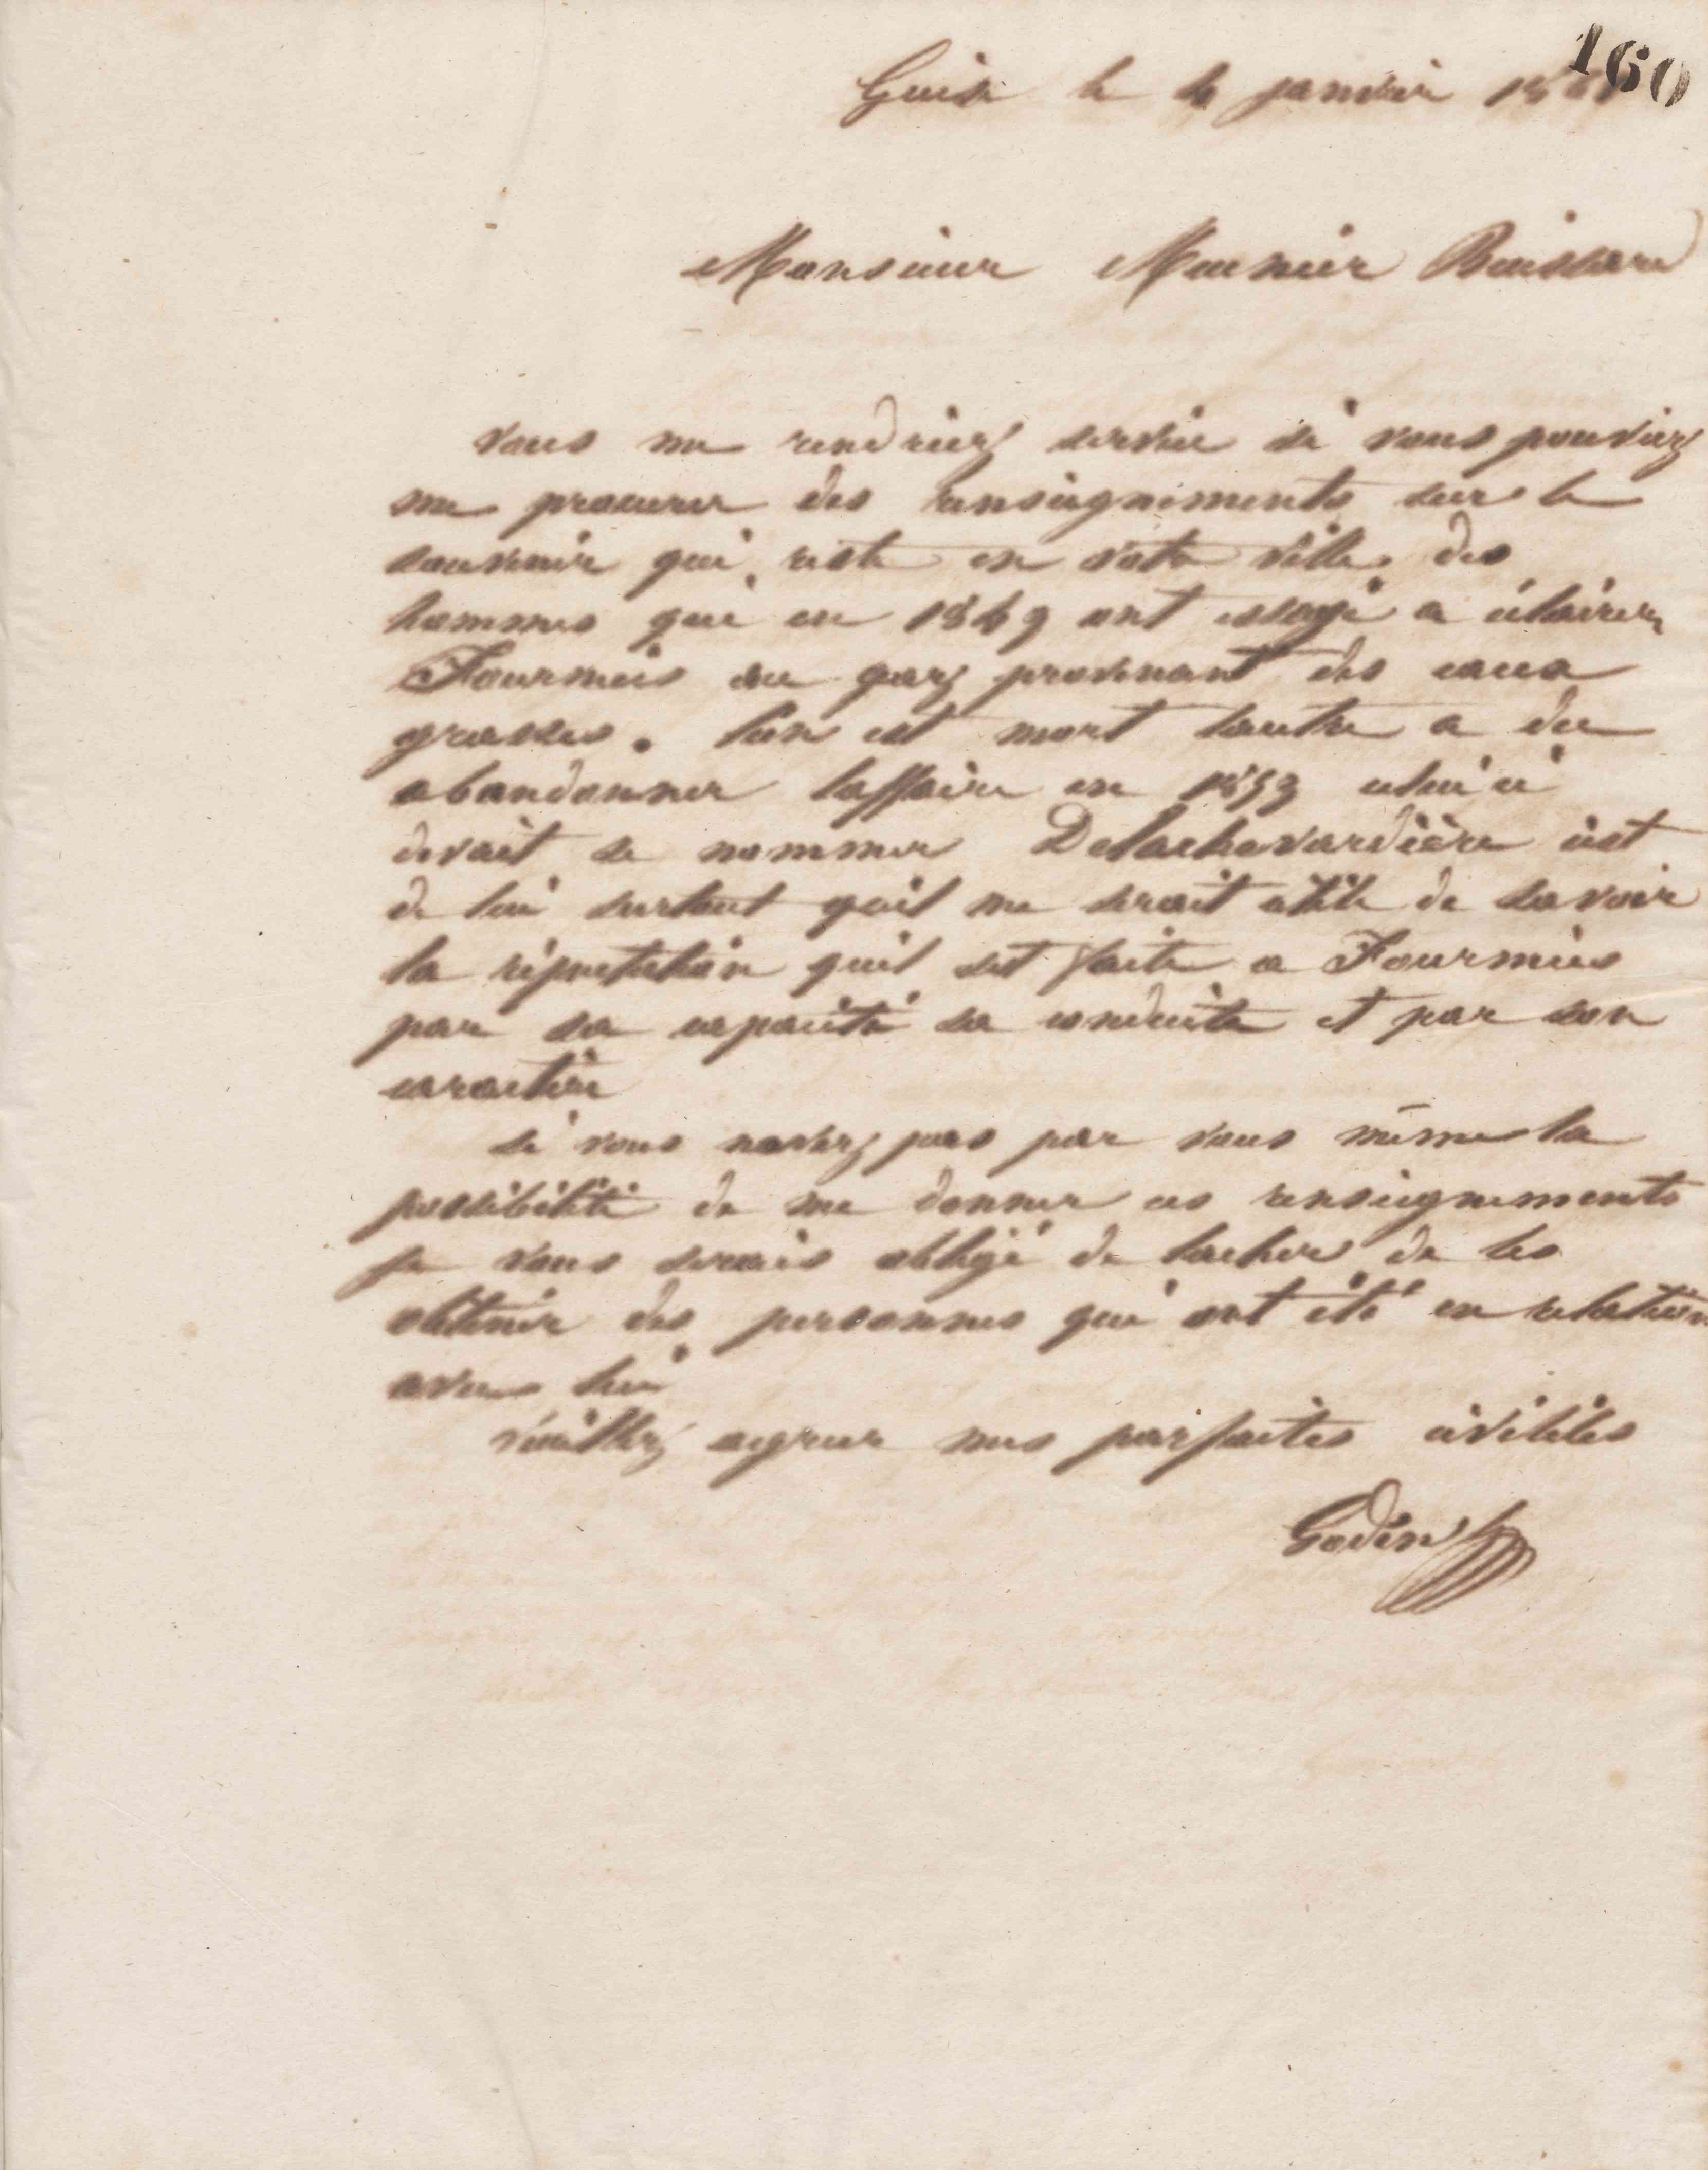 160
Guise le 4 janvier 18
Monsieur Meunier
vous me rendriez service si vous pouviez
me procurer des renseignements sur le
souvenir qui reste en votre ville des
hommes qui en 1849 ont essayé a éclairer
Fourmies au gaz provenant des eaux
grasses. lun est mort lautre a du
abandonner laffaire en 1853 celui ci
devait se nommer Delachevardière cest
de lui surtout quil me serait utile de savoir
la réputation quil sest faite a Fourmies
par sa capacité sa conduite et par son
caractère
si vous navez pas par vous même la
possibilité de me donner ces renseignements
je vous serais obligé de tacher de les
obtenir des personnes qui ont été en relation
avec lui
veuillez agreer mes parfaites civilités
Godin